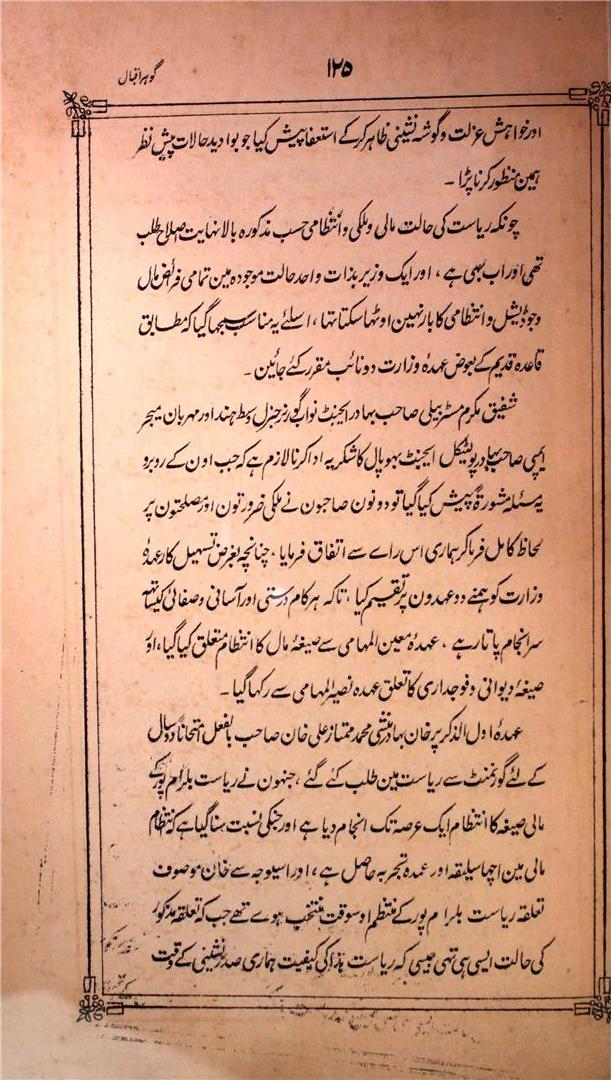 ۱۲۵
گوہر اقبال
اور خواہش عزلت و گوشہ نشینی ظاہر کر کے استعفا پیش کیا جو بوا دید حالات پیش نظر
ہمین منظور کرنا پڑا ۔
چونکہ ریاست کی حالت مالی و ملکی و انتظامی حسب مذکورہ بالا نہایت اصلاح طلب
تھی اور اب بھی ہے ، اور ایک وزیر بذات واحد حالت موجودہ مین تمامی فرائض مال
وجوڈیشل و انتظامی کا بار نہین اوٹھا سکتا تہا ، اسلئے یہ مناسب سمجہا گیا کہ مطابق
قاعدہ قدیم کے بعوض عہدۂ وزارت دو نائب مقرر کئے جائین ۔
شفیق مکرم مسٹر بیلی صاحب بہادر ایجنٹ نواب گورنر جنرل وسط ہند اور مہربان میجر
ایمپی صاحب بہادر پولیٹکل ایجنٹ بہوپال کا شکریہ ادا کرنا لازم ہے کہ جب اون کے روبرو
یہ مسئلہ مشورۃً پیش کیا گیا تو دونون صاحبون نے ملکی ضرورتون اور مصلحتون پر
لحاظ کامل فرما کر ہماری اس راے سے اتفاق فرمایا ، چنانچہ بغرض تسہیل کار عہدۂ
وزارت کو ہمنے دو عہدون پر تقسیم کیا ، تاکہ ہر کام درستی اور آسانی و صفائی کیساتھ
سرانجام پاتا رہے ، عہدۂ معین المہامی سے صیغۂ مال کا انتظام متعلق کیا گیا ، اور
صیغۂ دیوانی و فوجداری کا تعلق عہدہ نصیر المہامی سے رکہا گیا ۔
عہدۂ اول الذکر پر خان بہادر منشی محمد ممتاز علی خان صاحب بالفعل امتحاناً دو سال
کے لئے گورنمنٹ سے ریاست مین طلب کئے گئے ، جنہون نے ریاست بلرام پور کے
مالی صیغہ کا انتظام ایک عرصہ تک انجام دیا ہے اور جنکی نسبت سنا گیا ہے کہ انتظام
مالی مین اچہا سلیقہ اور عمدہ تجربہ حاصل ہے ، اور اسیوجہ سے خان موصوف
تعلقہ ریاست بلرام پور کے منتظم اوسوقت منتخب ہوے تھے جب کہ تعلقہ مذکور
کی حالت ایسی ہی تہی جیسی کہ ریاست ہذا کی کیفیت ہماری صدر نشینی کے وقت